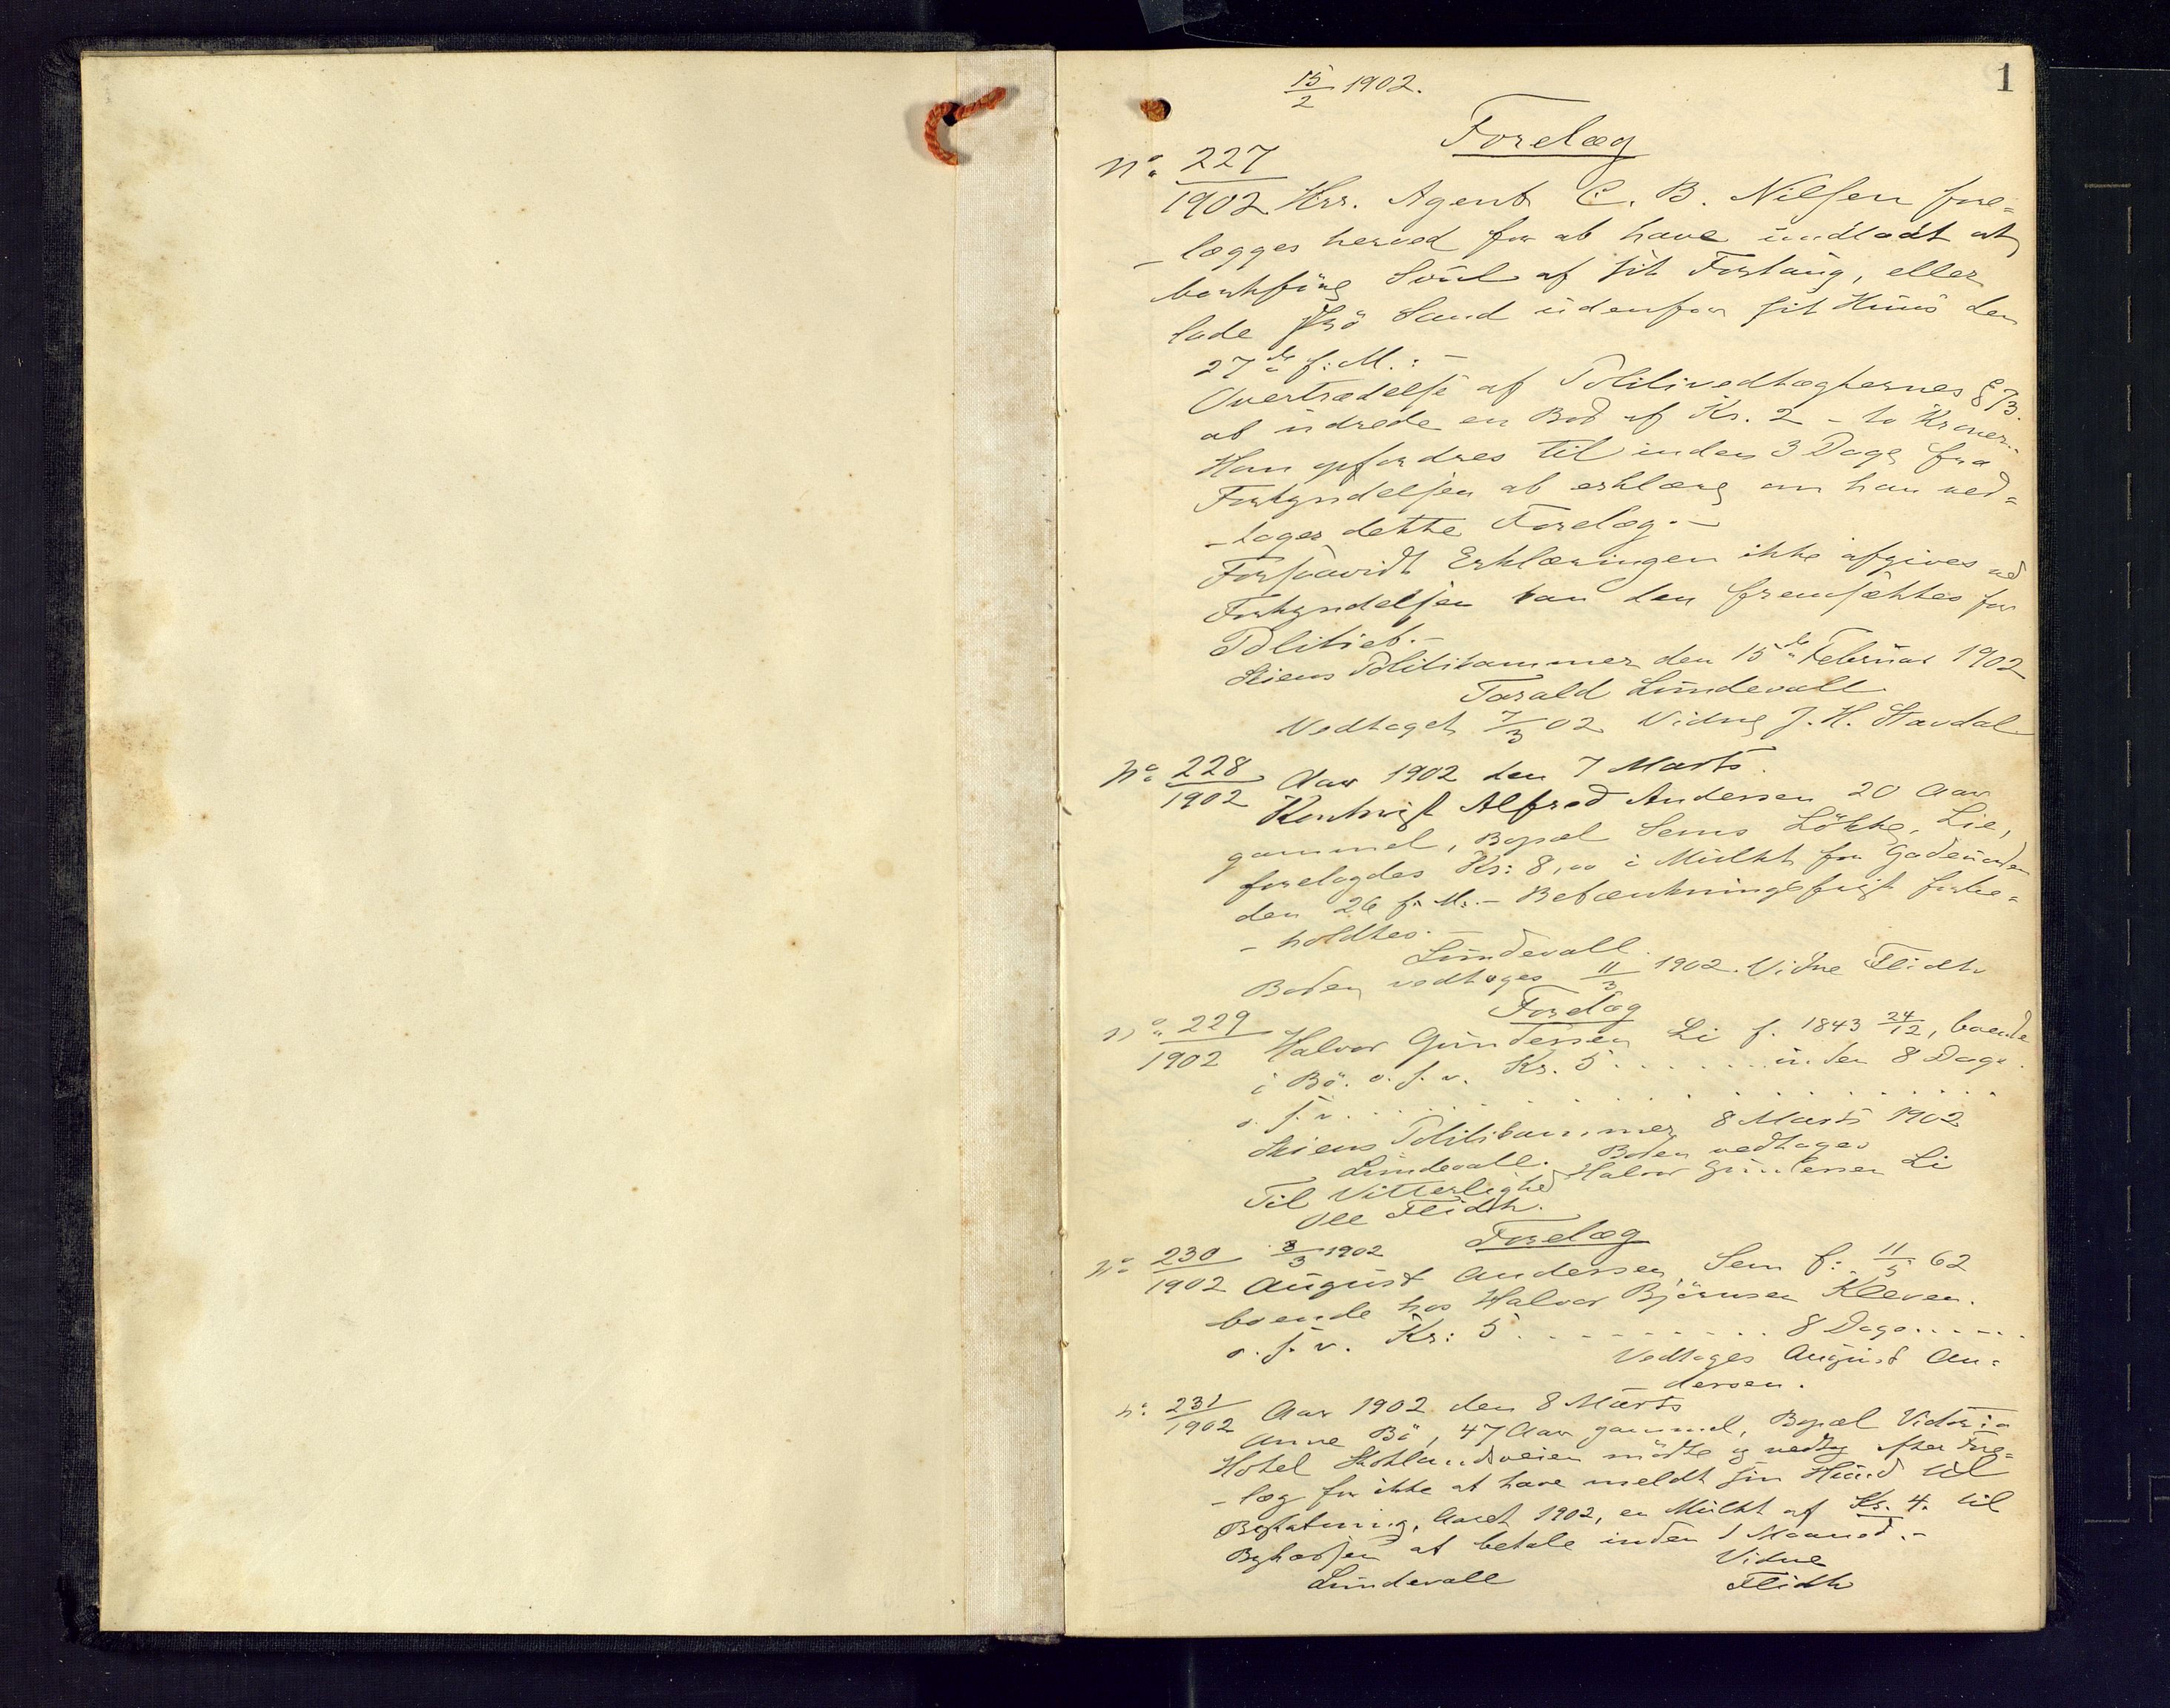 1
15/2 1902.
Forelæg
No. 227/1902 Hrr. Agent C. B. Nilsen fore=
-lægges herved for at have undladt at
bortføre Snöl af sit Fortaug, eller
lade strö Sand udenfor sit Huus den
27de f: M.: -
Overtrædelse af Politivedtægternes § 73.
at udrede en Bod af Kr. 2 - to Kroner.-
Han opfordres til inden 3 Dage fra
Forkyndelsen at erklære om han ved=
-tager dette Forelæg.-
Forsaavidt Erklæringen ikke afgives ved
Forkyndelsen kan den fremsættes for
Politiet.-
Skiens Politikammer den 15de Februar 1902
Tarald Lundevall
Vedtaget 7/3 02 Vidne J. H. Stavdal
No. 228/1902 Aar 1902 den 7 Marts.
Alfred Andersen 20 Aar
gammel, Bopæl Sems Løkke, Lie,
forelagdes Kr: 8,00 i Mulkt for Gadeuorden
den 26 f. M. - Betænkningsfrist forbe=
-holdtes.-
Lundevall.
Boden vedtages 11/3 1902. Vidne Flidth
Forelæg
No. 229/1902 Halvor Gundersen Li f. 1843 24/12, boende
i Bö. o. s. v. Kr. 5 . . . . . . . inden 8 Dage.
o. s. v. . . . . . . . . . . . . . . . .
Skiens Politikammer 8 Marts 1902
Lundevall. Boden vedtages
Til Vitterlighed Halvor Gundersen Li
Ole Flidth.
No. 230/1902 8/3 1902 Forelæg
August Andersen Sem f: 11/5 62
boende hos Halvor Björnsen Kleven.
o. s. v. Kr: 5 . . . . . . . . . . 8 Dage. . . . .
Vedtages August An=
dersen.
No. 231/1902 Aar 1902 den 8 Marts
Anne Bö, 47 Aar gammel, Bopæl Victoria
Hotel Skotlandsveien mödte og vedtog efter Fore=
-læg for ikke at have meldt sin Hund til
Beskatning, Aaret 1902, en Mulkt af Kr. 4. til
Bykassen at betale inden 1 Maaned.-
Lundevall Vidne
Flidth